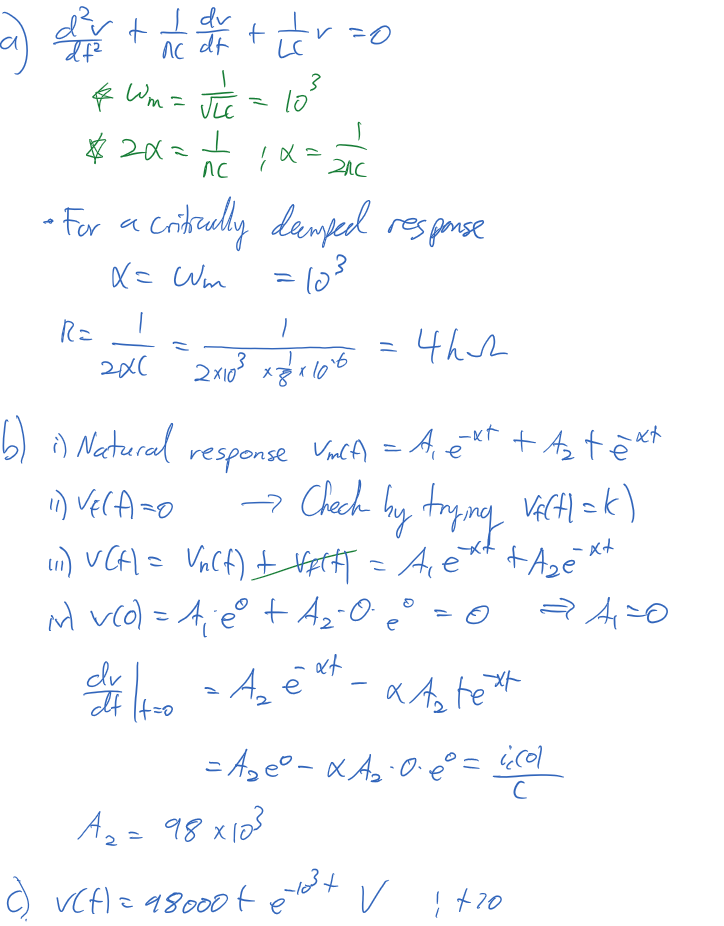 a) d²v/dt² + 1/RC dv/dt + 1/LC v = 0
* ωn = 1/√LC = 10³
* 2α = 1/RC ; α = 1/2RC
• For a critically damped response
α = ωn = 10³
R = 1/2αC = 1/(2×10³ × 1/8 × 10⁻⁶) = 4kΩ
b) i) Natural response vn(t) = A₁ e^-αt + A₂ t e^-αt
ii) vf(t) = 0 → Check by trying vf(t) = k)
iii) v(t) = vn(t) + vf(t) = A₁ e^-αt + A₂ e^-αt
iv) v(0) = A₁·e⁰ + A₂·0·e⁰ = 0 ⇒ A₁ = 0
dv/dt |t=0 = A₂ e^-αt - α A₂ t e^-αt
= A₂ e⁰ - α A₂·0·e⁰ = ic(0)/C
A₂ = 98 × 10³
c) v(t) = 98000 t e^-10³t V ; t>0